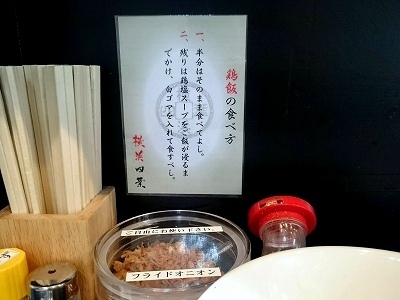 鶏飯の食べ方
一、半分はそのまま食べてよし。
二、残りは鶏塩スープをご飯が浸るま
でかけ、白ゴマを入れて食すべし。
麺菜四葉
ご自由にお使い下さい。
フライドオニオン